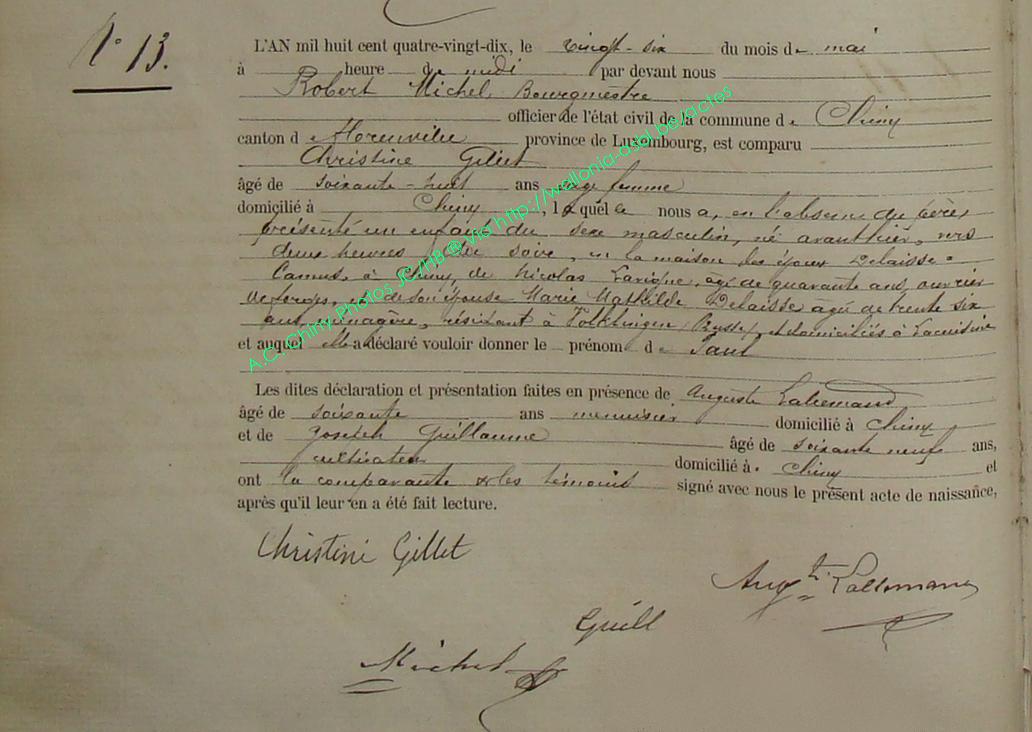 N° 13.
L'AN mil huit cent quatre-vingt-dix, le vingt-six du mois de mai
à heure de midi par devant nous
Robert Michel, Bourgmestre
officier de l'état civil de la commune de Chiny
canton de Florenville province de Luxembourg, est comparu
Christine Gillet
âgé de soixante-huit ans sage femme
domicilié à Chiny, laquelle nous a, en l'absence du père,
présenté un enfant du sexe masculin, né avanthier, vers
deux heures du soir, en la maison des époux Delaisse-
Camus, à Chiny, de Nicolas Lavigne, âgé de quarante ans, ouvrier
de forges, et de son épouse Marie Mathilde Delaisse âgée de trente six
ans, ménagère, résidant à Volklingen (Prusse) et domiciliés à Lacuisine
et auquel elle a déclaré vouloir donner le prénom de Paul
Les dites déclaration et présentation faites en présence de Auguste Lallemand
âgé de soixante ans menuisier domicilié à Chiny
et de Joseph Guillaume âgé de soixante neuf ans,
cultivateur domicilié à Chiny et
ont la comparante & les témoins signé avec nous le présent acte de naissance,
après qu'il leur en a été fait lecture.
Christine Gillet
Augte Lallemand
Guill
Michel
A.C. Chiny Photos JC/HB ® via http://wallonia-asbl.be/actes